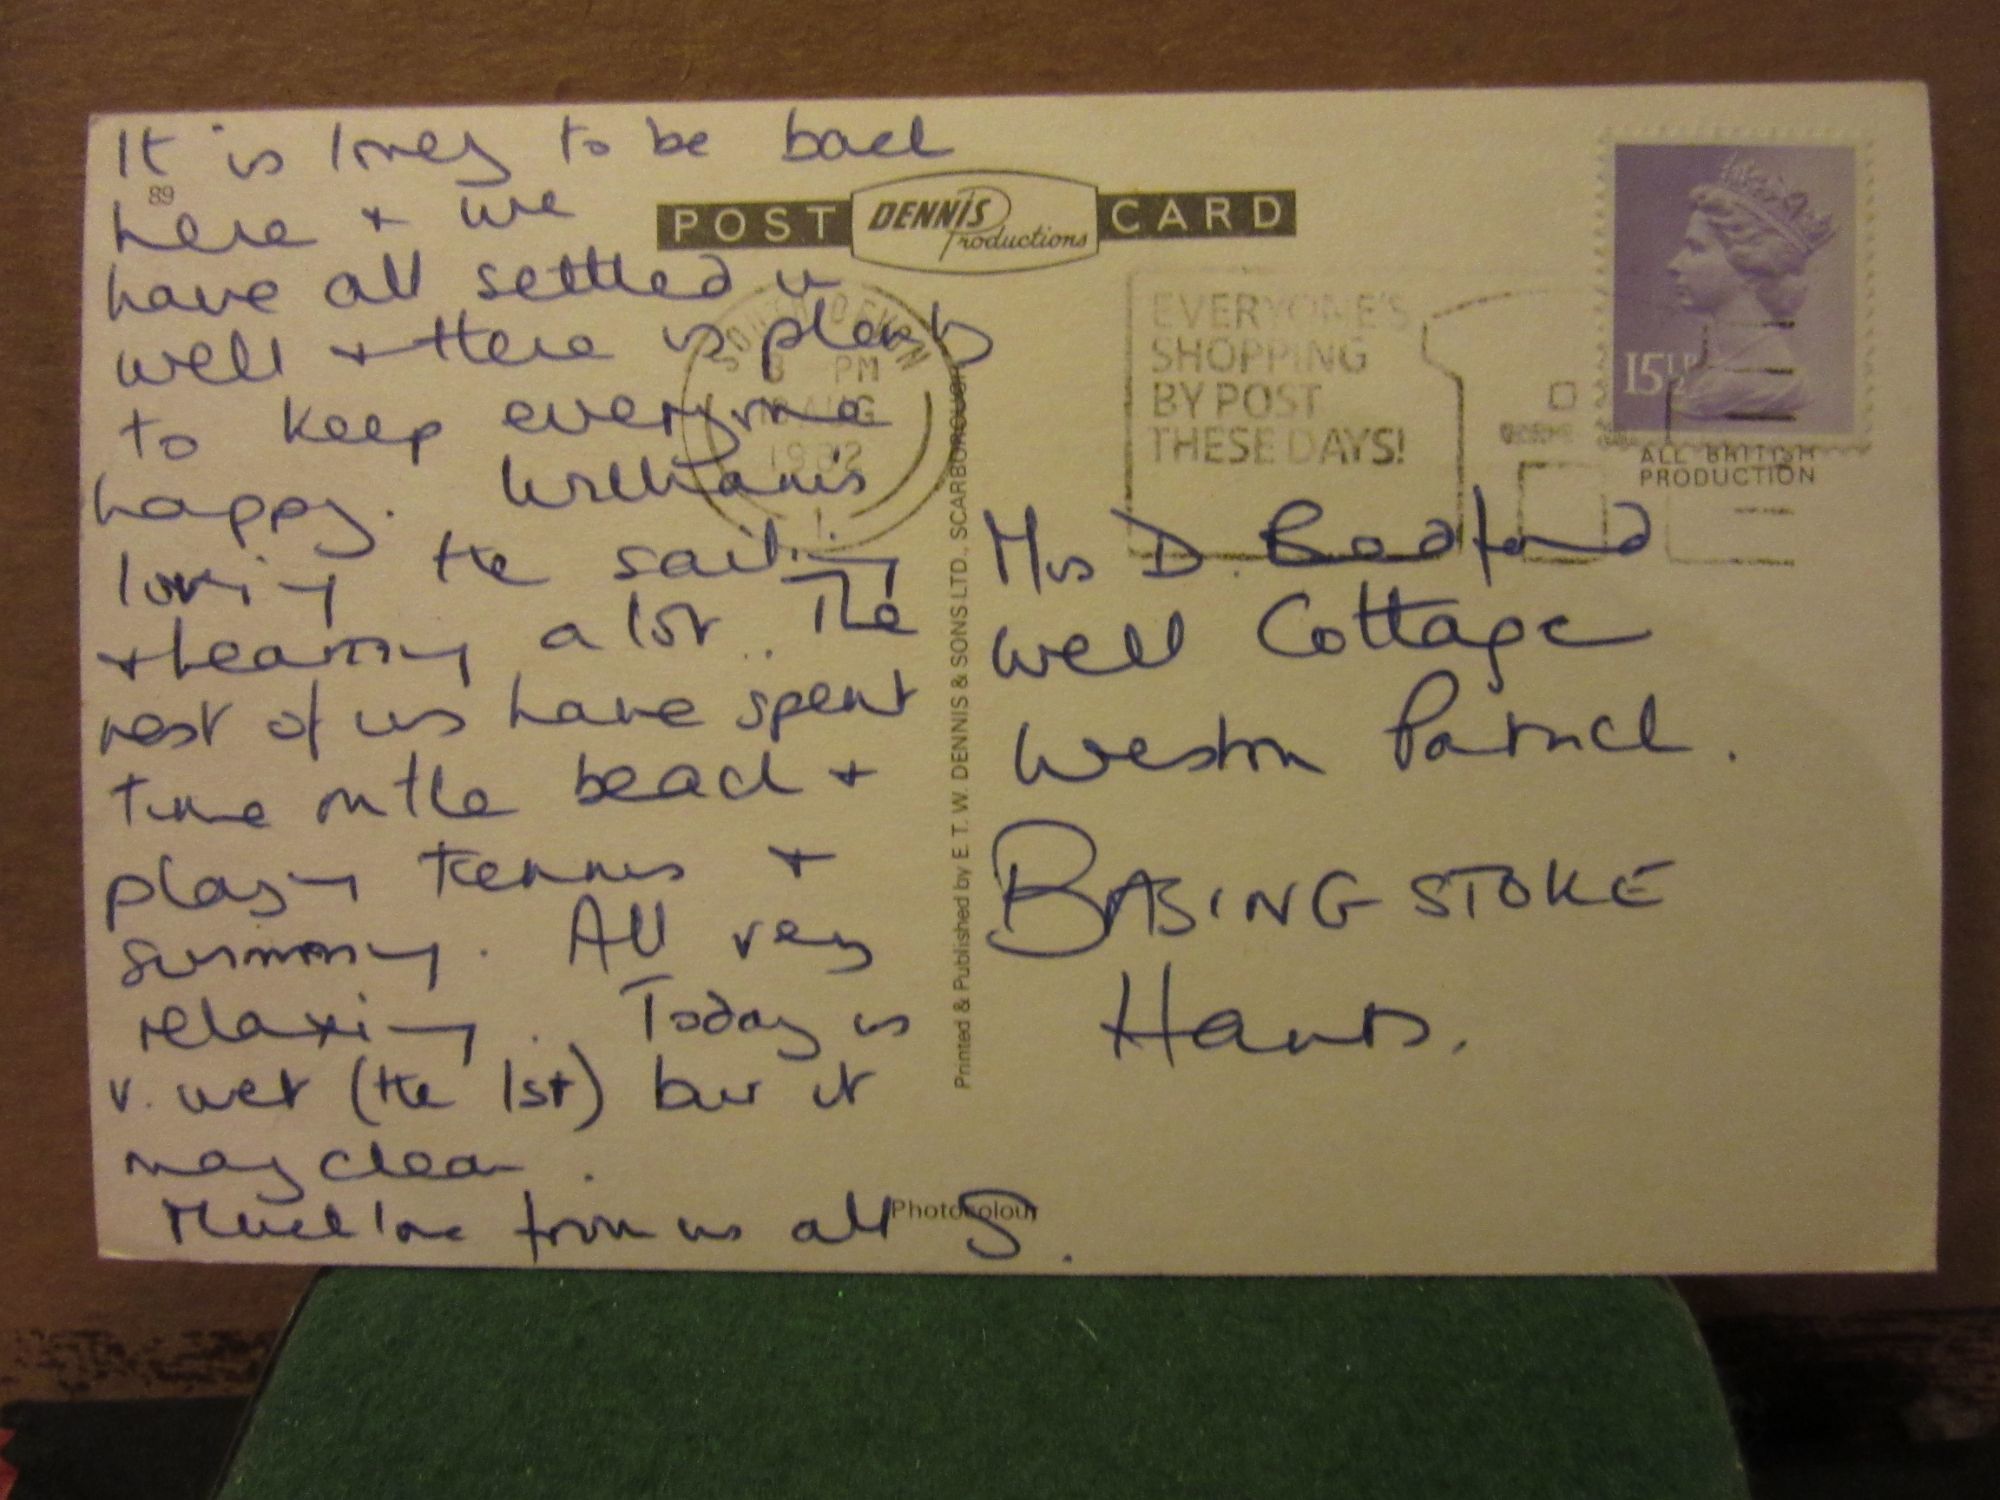 It is lovely to be back
89
here + we
have all settled in
well + there is plenty
to keep everyone
happy. William is
loving the sailing
+ learning a lot. The
rest of us have spent
time on the beach +
playing tennis +
swimming. All very
relaxing. Today is
v. wet (the 1st) but it
may clear.
Much love from us all S.
POST DENNIS Productions CARD
SOUTH DEVON
8 PM
AUG
1982
EVERYONE'S
SHOPPING
BY POST
THESE DAYS!
15½P
ALL BRITISH
PRODUCTION
Printed & Published by E. T. W. DENNIS & SONS LTD., SCARBOROUGH
Mrs D. Bedford
Well Cottage
Weston Patrick.
BASINGSTOKE
Hants.
Photocolour